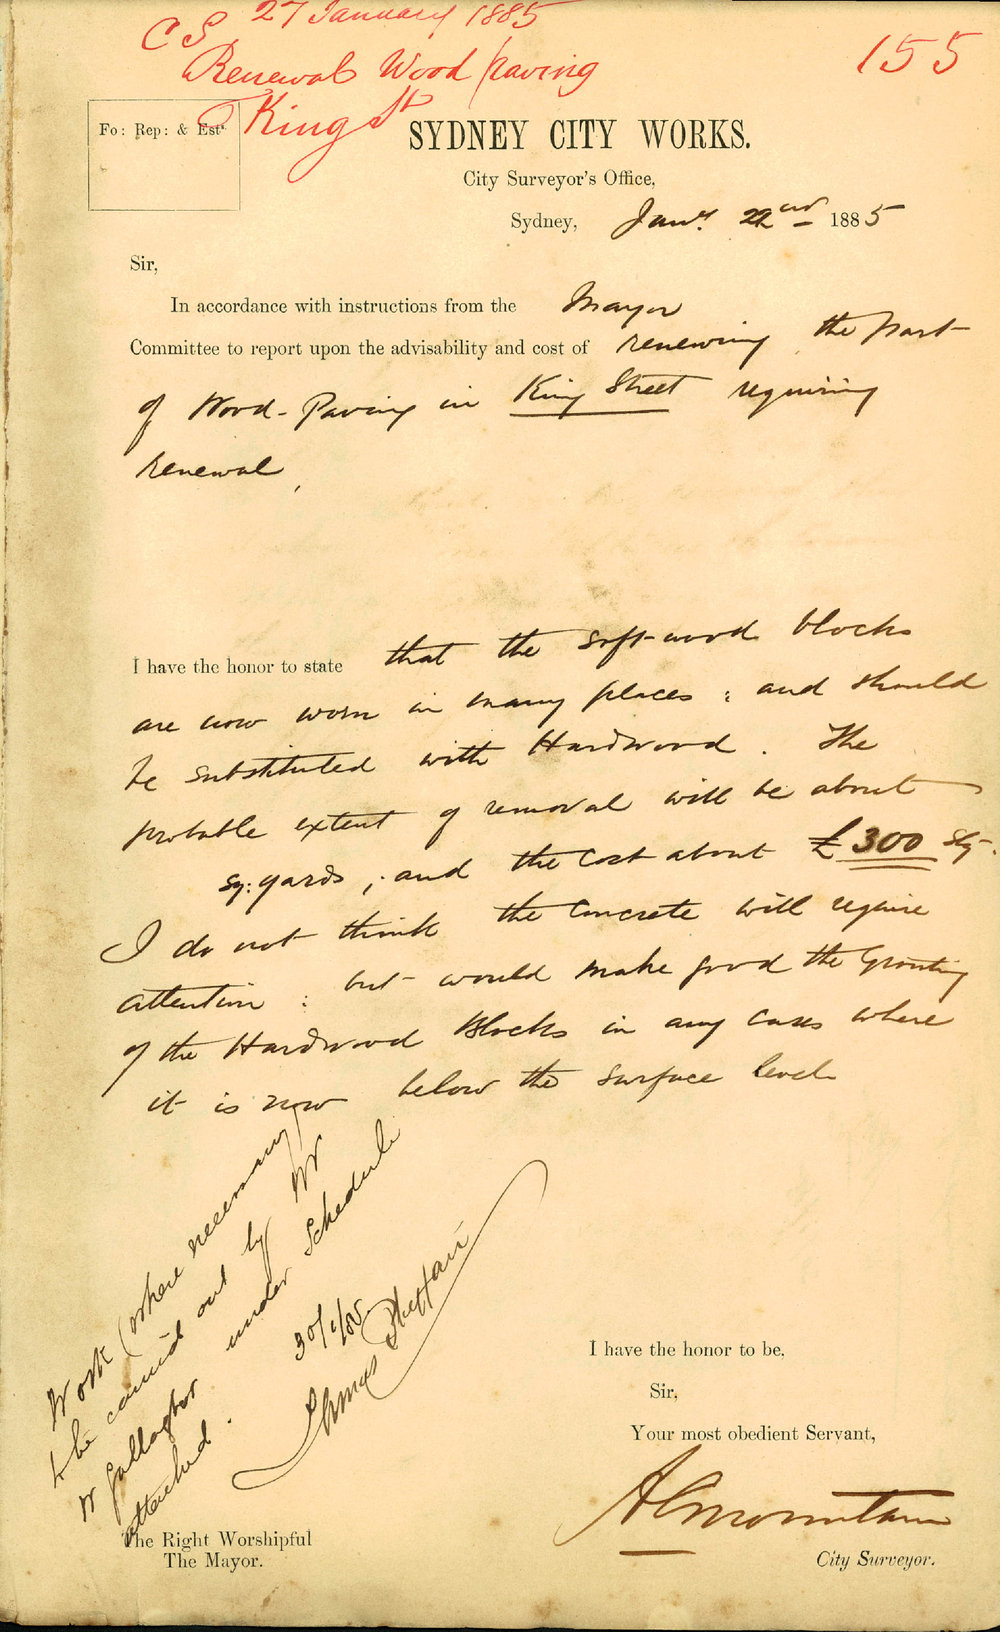 27 January 1885
C S
155
Renewal Wood paving
King St
Fo: Rep: & Estt
SYDNEY CITY WORKS.
City Surveyor's Office,
Sydney, Jany. 22nd 1885
Sir,
In accordance with instructions from the Mayor
Committee to report upon the advisability and cost of renewing the part
of Wood-Paving in King Street requiring
renewal,
I have the honor to state that the soft-wood blocks
are now worn in many places; and should
be substituted with Hardwood. The
probable extent of removal will be about
sq: yards; and the cost about £300 Stg.
I do not think the concrete will require
attention: but would make good the Grouting
of the Hardwood Blocks in any cases where
it is now below the surface level
Work (where necessary
to be carried out by Mr
W Gallagher under Schedule
attached.
30/1/85
Thomas Playfair
I have the honor to be,
Sir,
Your most obedient Servant,
A C Mountain
City Surveyor.
The Right Worshipful
The Mayor.